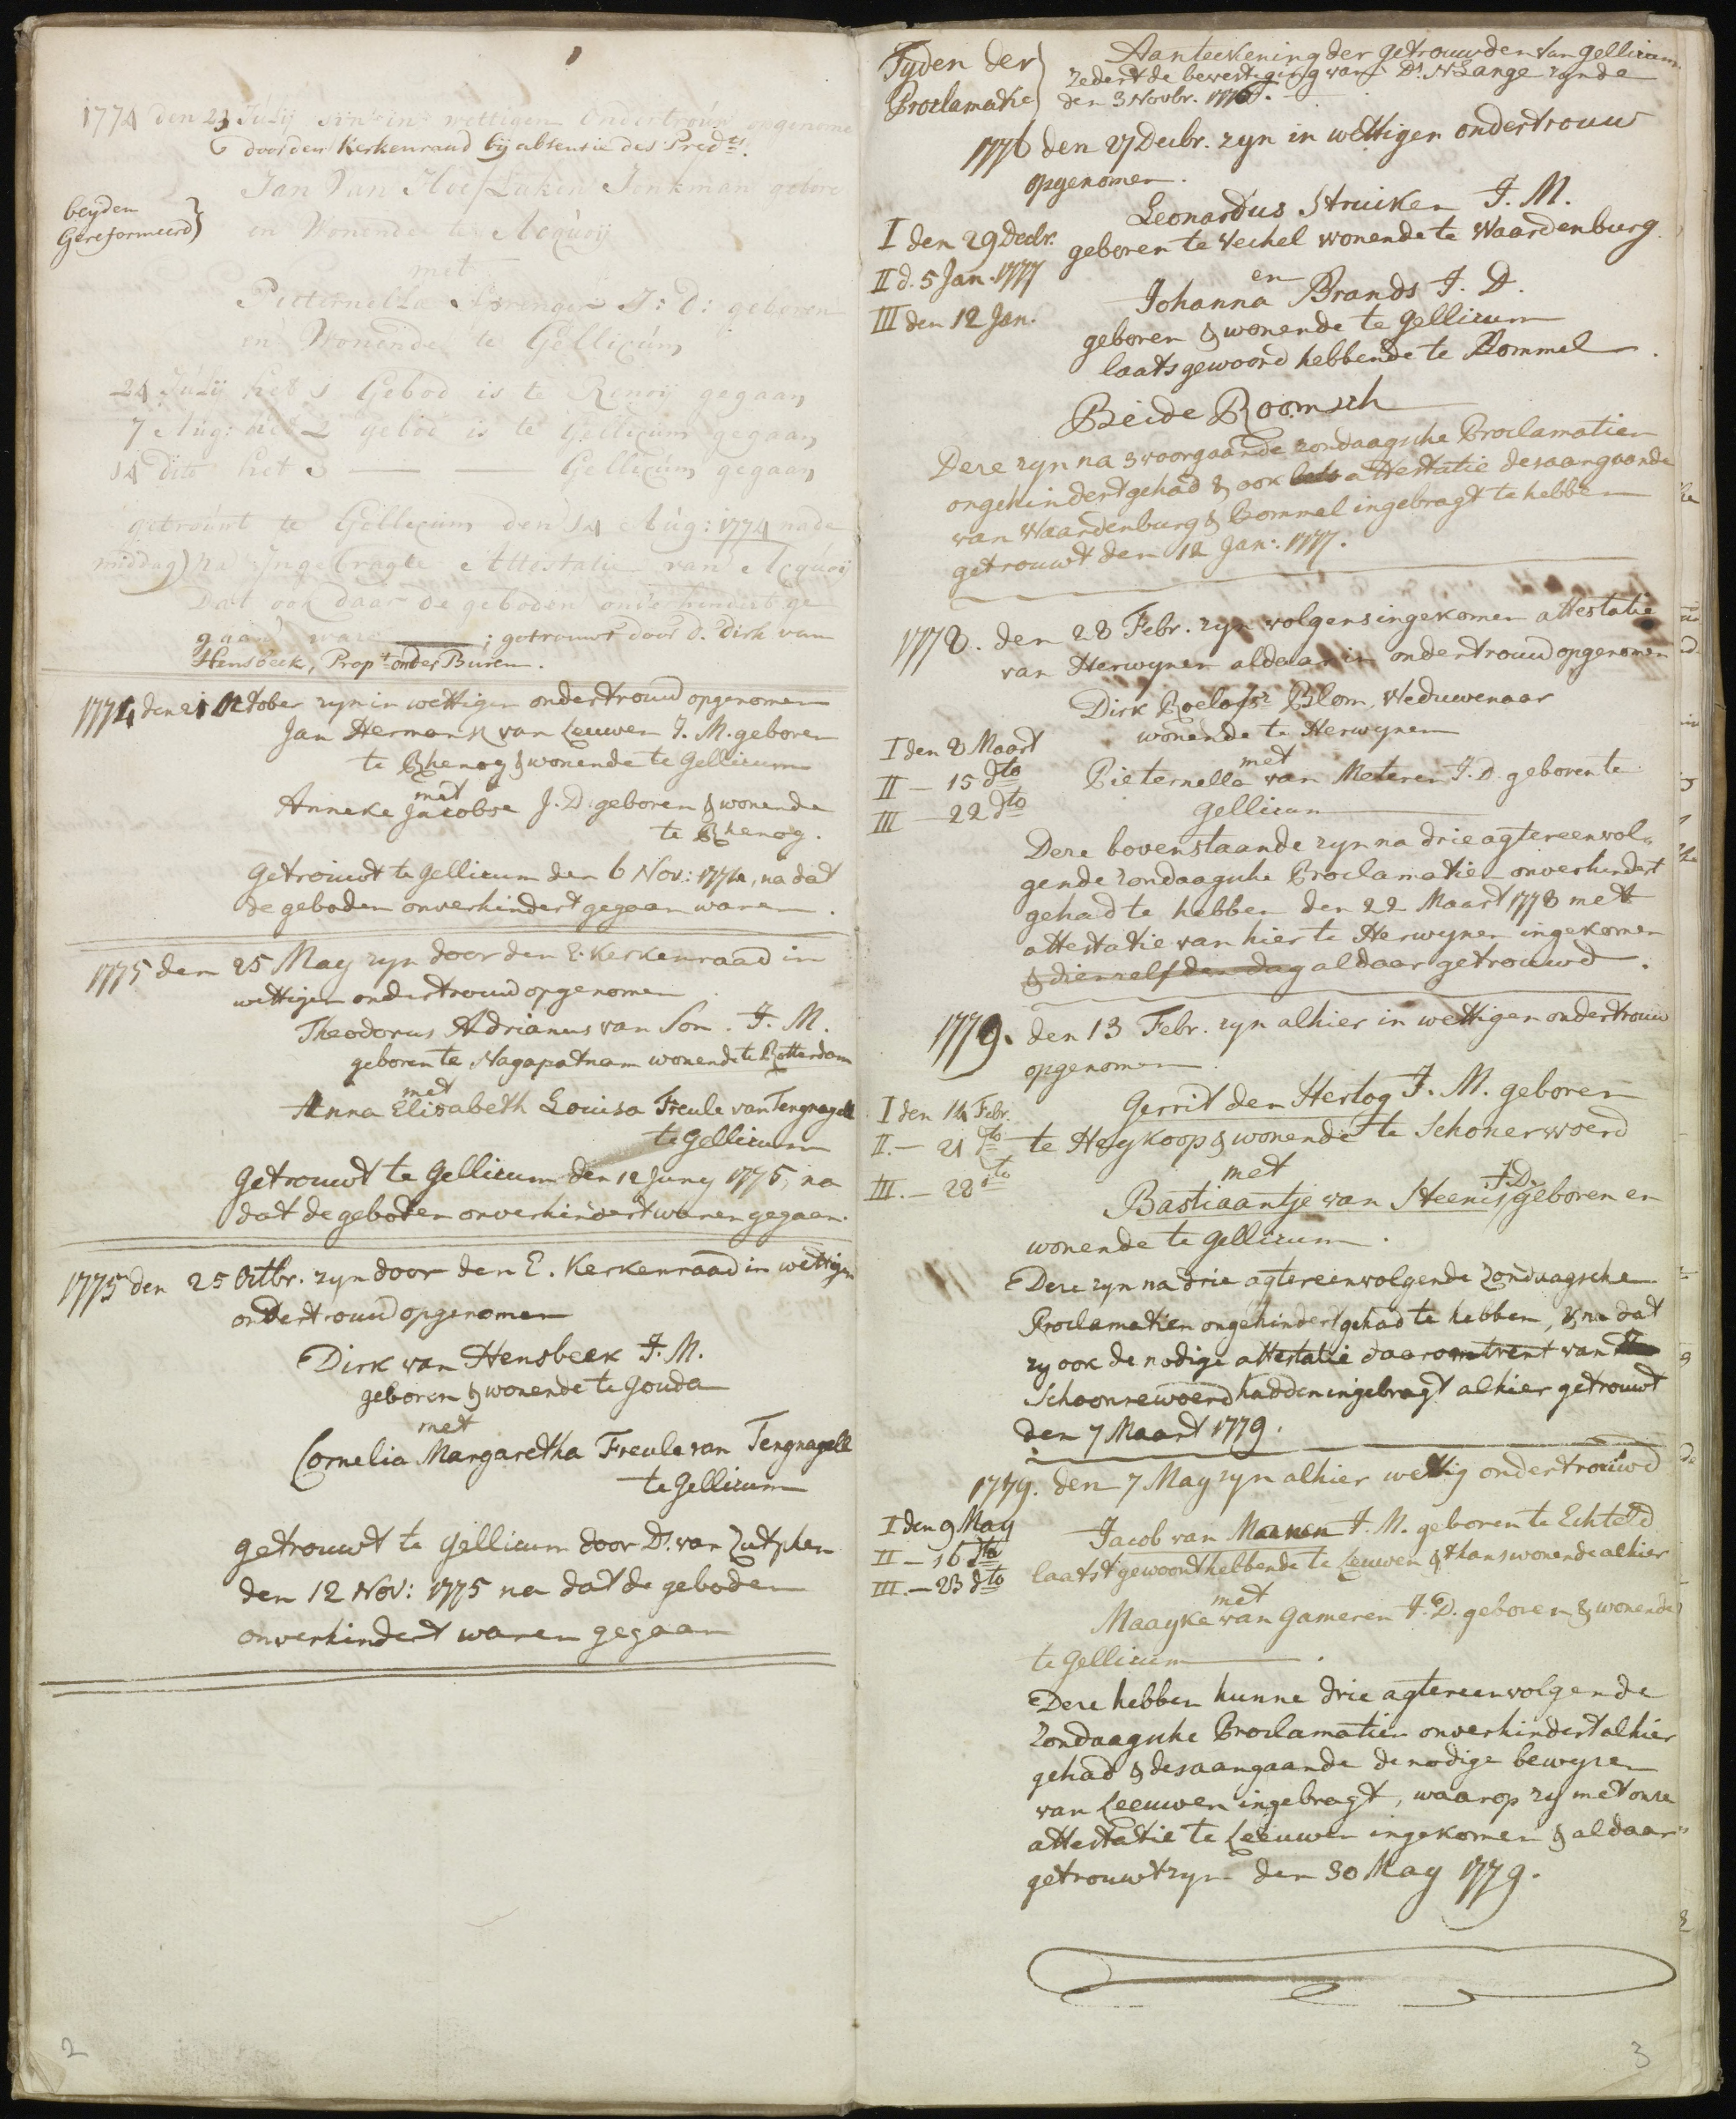 1774 den 23 Julij sijn in wettigen Ondertroúw opgenome
door den Kerkenraad bij absensie des Predts.
beyden
Gereformeerd}
Jan Van Hoeflaken Jonkman gebore
en Wonende te Acqúoij
met
Pieternella Sprenger J: d: geboren
en Wonende te Gellicúm
24 Júlij het 1 Gebod is te Renoij gegaan
7 Aúg: het 2 gebod is te Gellicúm gegaan
14 dito het 3 — — Gellicúm gegaan
getroúwt te Gellicúm den 14 Aúg: 1774 nade
middag) na ijngebragte Attestatie van Acqúoij
Dat ook daar de geboden onverhindert ge
gaan ware ; getrouwt door d. Dirk van
Hensbeek, Propt onder Buren.
1774 den 21 October zyn in wettigen ondertrouw opgenomen
Jan Hermansz van Leeuwen J. M. geboren
te Rhenoy & wonende te Gellicum
met
Anneke Jacobse J. D. geboren & wonende
te Rhenoy.
Getrouwt te Gellicum den 6 Nov: 1774, na dat
de geboden onverhindert gegaan waren.
1775 den 25 May zyn door den E. Kerkenraad in
wettigen ondertrouw opgenomen
Theodorus Adrianus van Son. J. M.
geboren te Nagapatnam wonende te Rotterdam
met
Anna Elisabeth Louisa Freule van Tengnagell
te Gellicum
Getrouwt te Gellicum den 12 Juny 1775, na
dat de geboden onverhindert waren gegaan.
1775 den 25 Octbr. zyn door den E. Kerkenraad in wettigen
ondertrouw opgenomen
Dirk van Hensbeek J. M.
geboren & wonende te Gouda
met
Cornelia Margaretha Freule van Tengnagell
te Gellicum
getrouwt te Gellicum door Ds. van Zutphen
den 12 Nov: 1775 na dat de geboden
onverhindert waren gegaan
2
Tyden der
Proclamatie}
Aanteekening der getrouwden van Gellicum
zedert de bevestiging van Ds. N Lange zynde
den 3 Novbr. 1776.
1776 den 27 Decbr. zyn in wettigen ondertrouw
opgenomen.
Leonardus Struiken J. M.
I den 29 Decbr. geboren te Vechel wonende te Waardenburg.
II d. 5 Jan. 1777
en
Johanna Brands J. D.
III den 12 Jan.
geboren & wonende te Gellicum
laats gewoond hebbende te Bommel.
Beide Roomsch
Deze zyn na 3 voorgaande zondaagsche Proclamatien
ongehindert gehad & ook attestatie desaangaande
van Waardenburg & Bommel ingebragt te hebben
getrouwt den 12 Jan: 1777.
1778. den 28 Febr. zyn volgens ingekomen attestatie
van Herwynen aldaar in ondertrouw opgenomen
Dirk Roelofsz Blom, Weduwenaar
wonende te Herwynen
I den 8 Maart
met
II — 15 dto Pieternella van Meteren J. D. geboren te
III — 22 dto Gellicum
Deze bovenstaande zyn na drie agtereenvol„
gende zondaagsche Proclamatien onverhindert
gehad te hebben den 22 Maart 1778 met
attestatie van hier te Herwynen ingekomen
& dienzelfden dag aldaar getrouwd.
1779. den 13 Febr. zyn alhier in wettigen ondertrouw
opgenomen.
I den 14 Febr. Gerrit den Hertog J. M. geboren
II. — 21 dto te Heykoop & wonende te Schonerwoerd
met
III. — 28 dto Bastiaantje van Steenis J.D. geboren en
wonende te Gellicum.
Deze zyn na drie agtereenvolgende Zondaagsche
Proclamatien ongehindert gehad te hebben, & na dat
zy ook de nodige attestatie daaromtrent van
Schoonrewoerd hadden ingebragt alhier getrouwt
den 7 Maart 1779.
1779. den 7 May zyn alhier wettig ondertrouwd
I den 9 May Jacob van Maanen J. M. geboren te Echteld
II — 16 dto laatst gewoont hebbende te Leeuwen & thans wonende alhier
III. — 23 dto
met
Maayke van Gameren J. D. geboren & wonende
te Gellicum.
Deze hebben hunne drie agtereenvolgende
Zondaagsche Proclamatien onverhindert alhier
gehad & desaangaande de nodige bewyzen
van Leeuwen ingebragt, waarop zy met onze
attestatie te Leeuwen ingekomen & aldaar
getrouwt zyn den 30 May 1779.
3